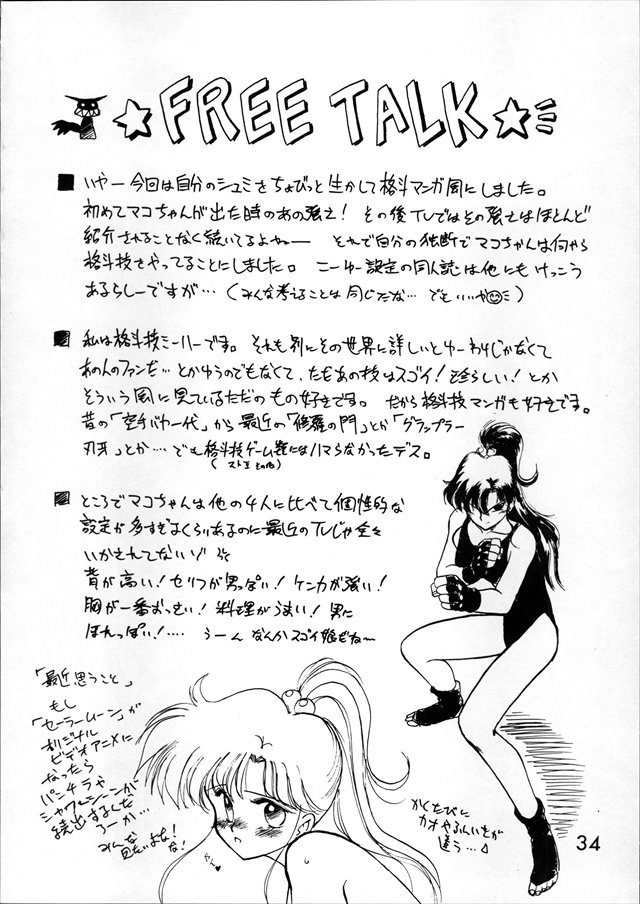 FREE TALK
いやー今回は自分のシュミをちょびっと生かして格斗マンガ風にしました。
初めてマコちゃんが出た時のあの強さ! その後TVではその強さはほとんど
紹介されることなく続いてるよねー それで自分の独断でマコちゃんは何やら
格斗技をやってることにしました。こーゆー設定の同人誌は他にもけっこう
あるらしーですが…(みんな考えることは同じだな… でもいいや
私は格斗技ミーハーです。それも別にその世界に詳しいとゆーわけじゃなくて
あの人のファンだ…とかゆうのでもなくて、ただあの技はスゴイ!珍らしい!とか
そういう風に見ているただのもの好きです。だから格斗技マンガも好きです。
昔の「空手バカ一代」から最近の「修羅の門」とか「グラップラー
刃牙」とか…でも格斗技ゲーム類にはハマらなかったデス。
ところでマコちゃんは他の4人に比べて個性的な
設定が多すぎるくらいあるのに最近のTVじゃ全々
いかされてないゾ
背が高い!セリフが男っぽい!ケンカが強い!
胸が一番おっきい!料理がうまい!男に
ほれっぽい!…… うーんなんかスゴイ娘だな〜
「最近思うこと」
もし
「セーラームーン」が
オリジナル
ビデオアニメに
なったら
パンチラや
シャワーシーンが
続出するんだ
ろーか…
みんな
見たいよな!
な!
かくたびに
カオやふんいきが
違う…
34